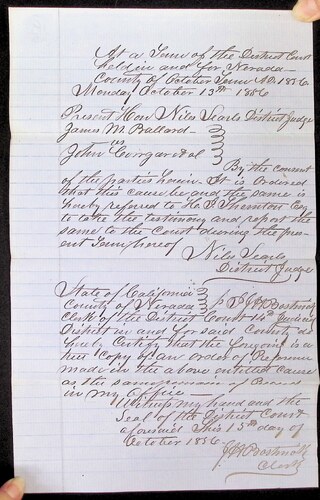 At a Term of the District Court
held in and for Nevada
County of October Term AD. 1856
Monday October 13th 1856
Present Hon Niles Searls District Judge
James M. Ballard
vs
John et al
By the consent
of the parties herein. It is Ordered
that this cause be and the same is
hereby referred to H. S. Esq
to take the testimony and report the
same to the Court during the pres-
ent Term hereof
Niles Searls
District Judge
State of California
County of Nevada
Clerk of the District Court 14th Judicial
District in and for said County do
hereby Certify that the foregoing is a
true Copy of an order of Reference
made in the above entitled cause
as the same remains of Record
in my Office
Witness my hand and the
Seal of the District Court
aforesaid This 13th day of
October 1856
Clerk